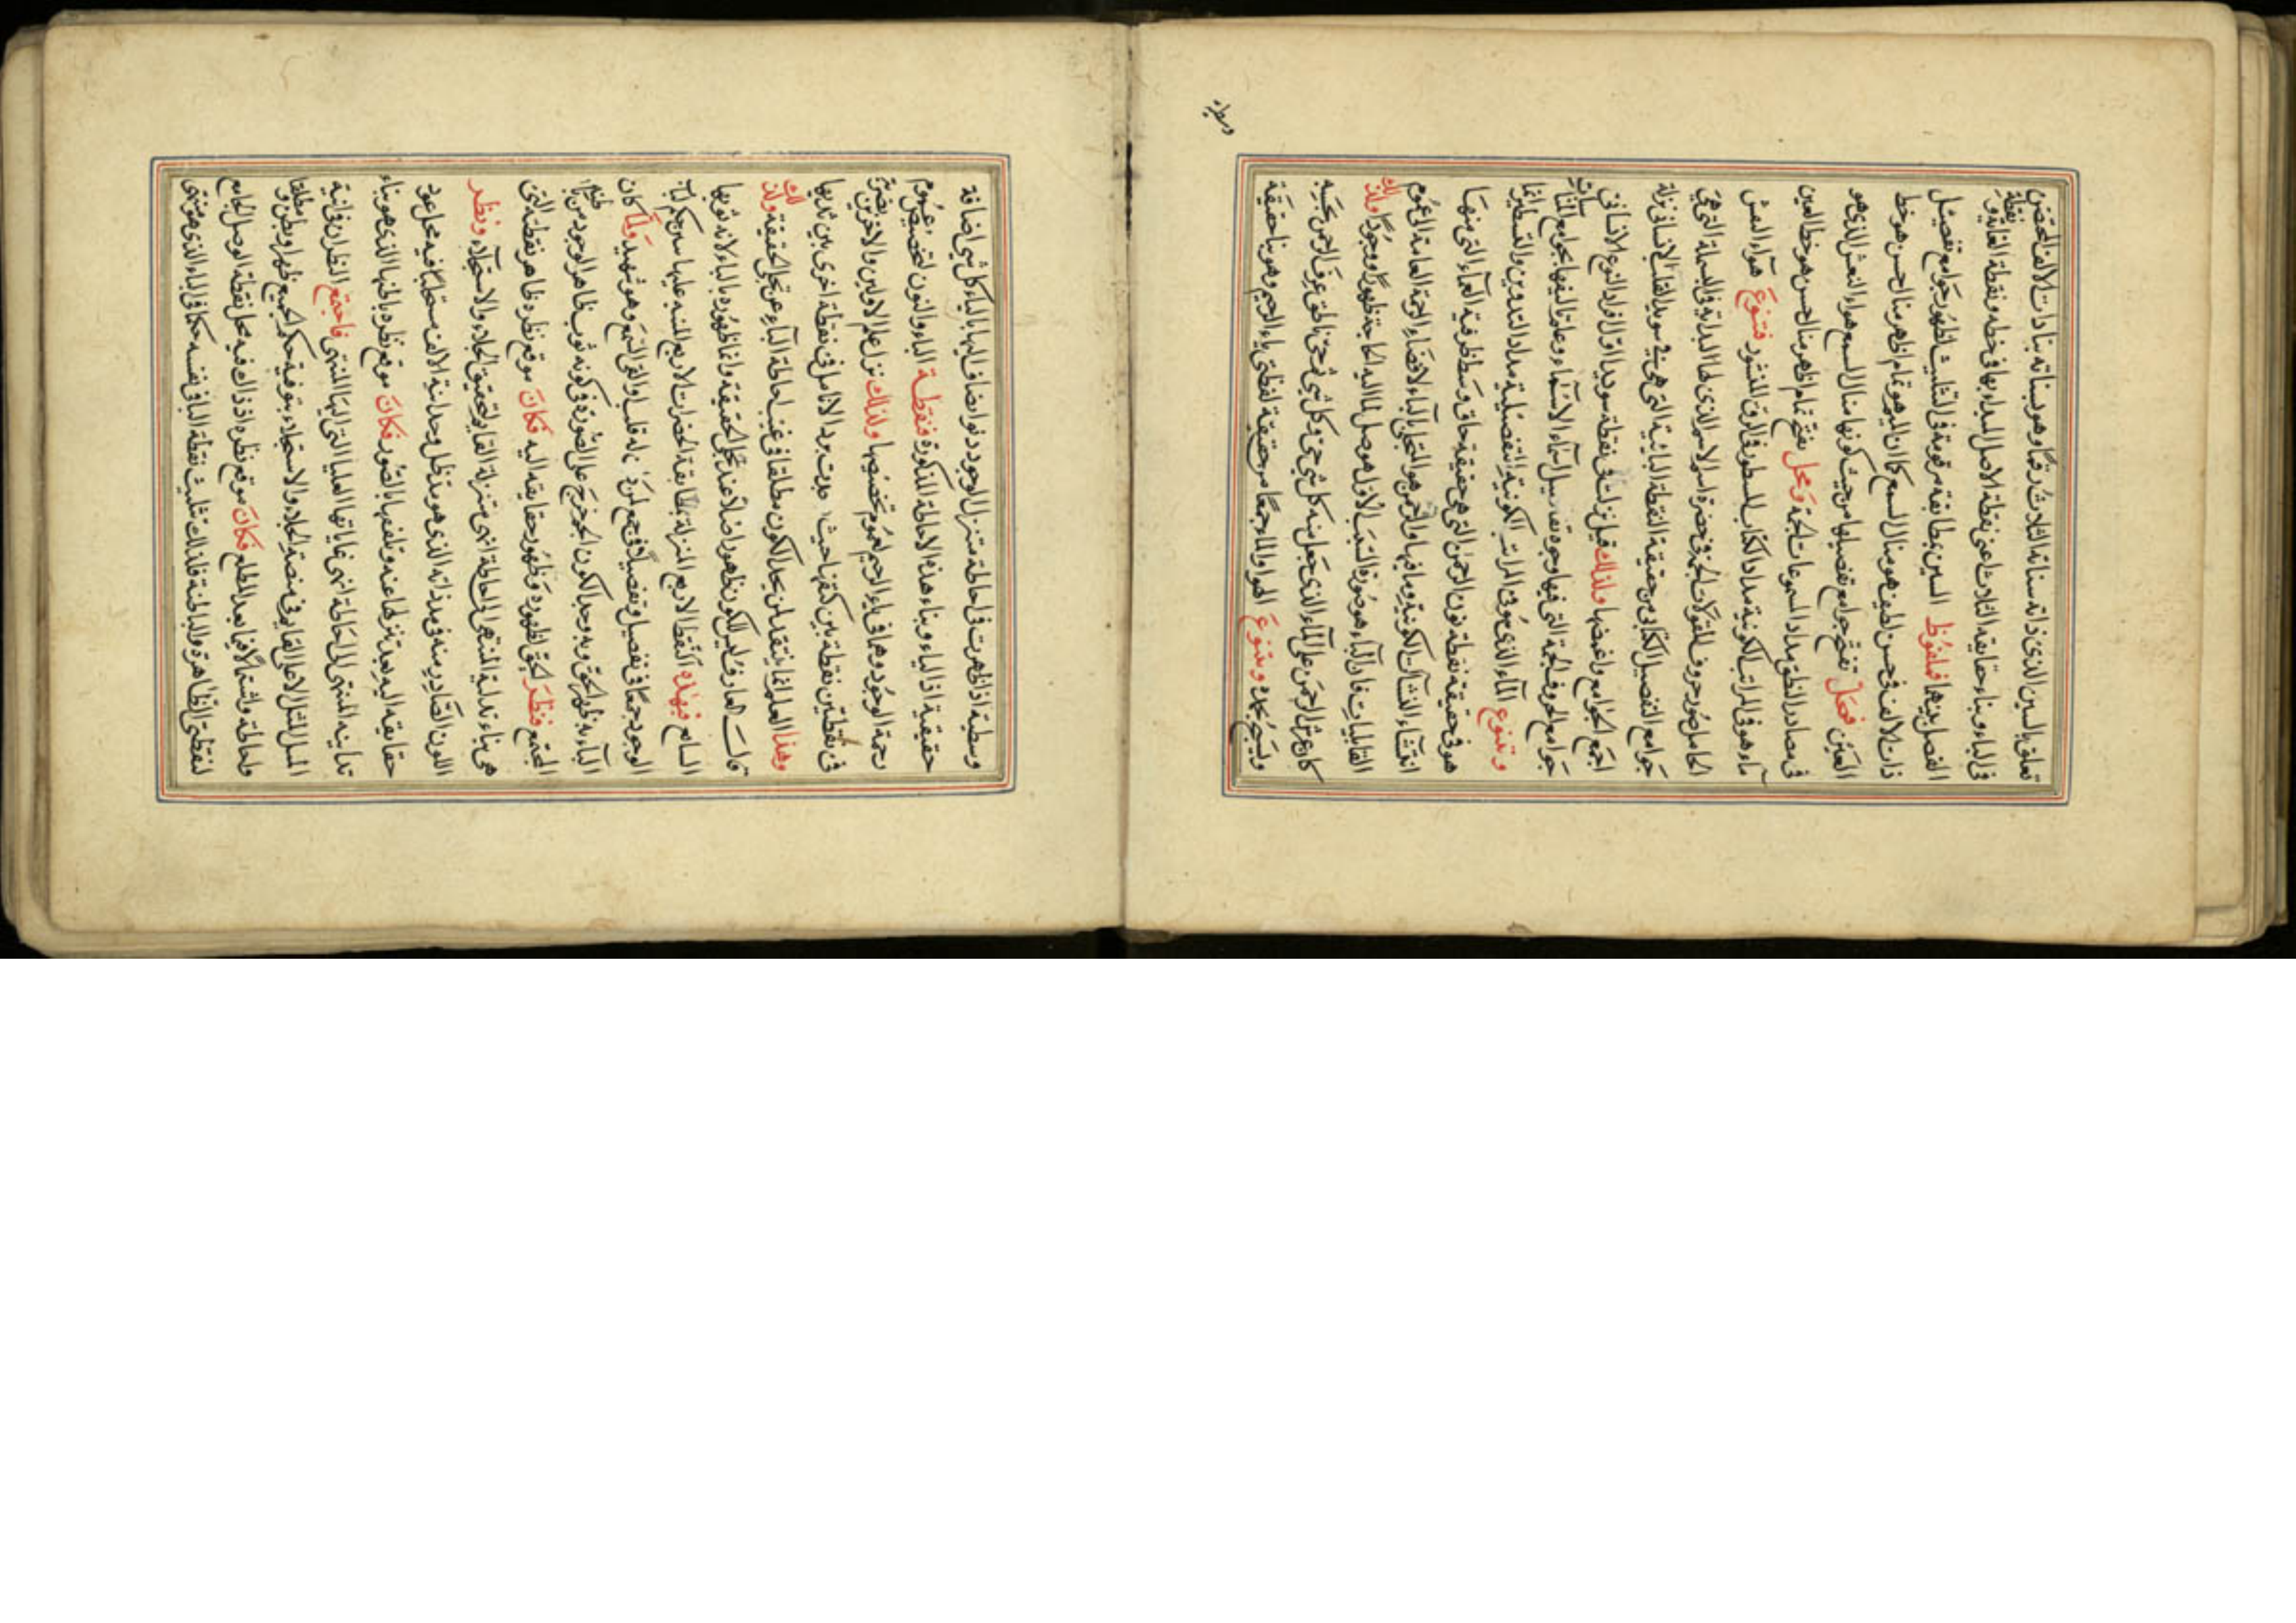 تعلق بالسين الذى ذاته ستاتة الثلاث رقما وهو بسناته بنا ذات الالف المختص
فى الباء وبناء حقايقه الثلاث اعنى نقطة الاصل المبداء بها فى خطه ونقطة الغاية ونقطة
الفصل بينهما فملفوظ السين بمطابقة مرقومة فى التثليث لظهور جوامع تفصيل
ذات الالف فحسن لطيف هو منال السمع كما ان الميم هو تمام اظهر منال الحسن هو خط
العين فحمل تفتح جوامع تفصيلها من حيث كونها منال السمع هواء النفس الذى هو
فى مصادر النطق مداد المسموعات لجمة ومحل تفتح تمام اظهر منال الحسن هو خط العين
ماء هو فى المراتب الكونية مداد الكتاب المسطور فى الرق المنشور فتنوع هواء النفس
الحامل صور حروف المقولات الجمة فى حضرة اسم الاسم الذى لها البداية فى البسملة التى هى
جوامع التفصيل الكتابى من حقيقة النقطة البائية التى هى فى سويدا القلب الانسانى نزلة
اجمع الجوامع واغمضها ولذلك قيل نزلت فى نقطة سويدا اول افراد النوع الانسانى
جوامع الحروف الجمة التى فيها وجوه تفاصيل اسماء الاسماء وعامة اليفها بجوامع المناسبات
وتنوع الماء الذى هو فى المراتب الكونية التفصيلية مداد التدوين والتسطير انما
هو فى حقيقة نقطة نون الرحمن التى هى حقيقة حاق وسط ظرفية العماء التى منها
انتشاء النشآت الكونية وما فيها والرحمن هو المتجلى بالباء لافضاء الرحمة العامة الى عموم
القابليات فان الباء هو صورة السبب الاول هو موصل لما اليه الحاجة ظهورا ووجودا ولذلك
كان عرش الرحمن على الماء الذى جعل منه كل شى حى وكل شى فحى ناطق عرف الرحمن بحسبه
ويسبح بحمده وبتنوع الهواء والماء جمعا من حقيقة نقطتى ياء الرحيم وهو بنا حقيقة
وسطية
وسطية اذا ظهرت فى احاطة متنزل الوجود نوا يضاف اليها بالباء كل شى اضافة
حقيقية اذ الياء وبناء هذه الاحاطة المذكورة فنقطة الباء والنون لتخصيص عموم
رحمة الوجود وهما فى ياء الرحيم لعموم تخصيصها ولذلك نزل علم الاولين والاخرين بضربة
فى نقطتين نقطة بين كتفيها حيث وجدت برد الانامل فى نقطة اخرى بين ثدييها
وهذا العلم انما ينتقد لمن يجد الكون مطلقا فى غيب احاطة الباء عن تجلى الحقيقة ولذلك
قالت العارف ليس للكون ظهور اصلا عند تجلى الحقيقة وانما ظهوره بالباء لانه ثوبها
السابغ فبهذه النقط الاربع المنزلة بمطابقة الحضرات الاربع المنبه عليها سنريهم اياتنا
الوجود جمعا فى تفصيل وتفصيلا فى جمع لمن كان له قلب او القى السمع وهو شهيد ولما كان
الباء به ظهر الحق وبه وجد الكون الجم خرج على الصورة فى كونه ثوب ظاهر الوجود من
المجتمع فنظر الحق لظهوره وظهور حقايقه اليه فكان موقع نظره ظاهر نقطته التى
هى بناء تدلية المنتهى الى احاطة انهى متنزلة القابل لتحقيق الجلاء والاستجلاء ونظر
اللون الصادر منه فى مد ذاته الذى هو مد ظل وحدانية الالف مستجلبا فيه محل عود
حقايقه اليه بعد تنزلها عنه وتلفعها بالصور فكان موقع نظره باطنها الذى هو بناء
تدانيه المنتهى الى احاطة انهى غاياتها العليا التى اليها المنتهى فاجتمع النظران فى انية
المثل المثل الاعلى القايم فى منصة الجلاء والاستجلاء بتوفية حكم الجميع ظهر او بطن ومطلقا
واحاطة واشتمالا فيما بعد المطلع فكان موقع نظره اذ ذاك فيه محل نقطة الوصل الجامع
لنقطتى الظاهرة والباطنة فلذلك تثليث نقطة البا فى نفسه حكما فى الباء الذى هو منتهى